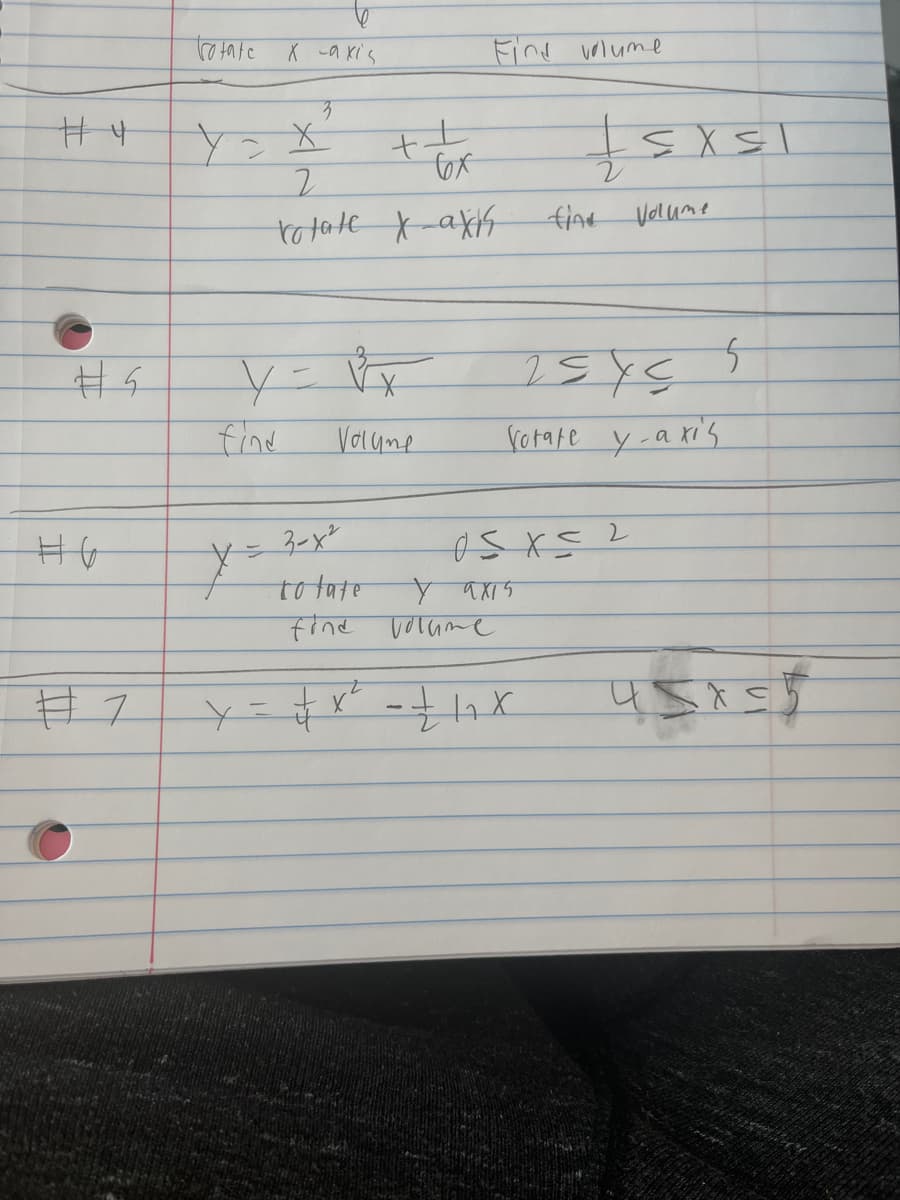 6
rotate x-axis Find volume
#4 y = x³/2 + 1/6x 1/2 ≤ x ≤ 1
rotate x-axis find volume
#5 y = ∛x 2 ≤ y ≤ 5
find volume rotate y-axis
#6 y = 3-x² 0 ≤ x ≤ 2
rotate y axis
find volume
#7 y = 1/4 x² - 1/2 ln x 4 ≤ x ≤ 5